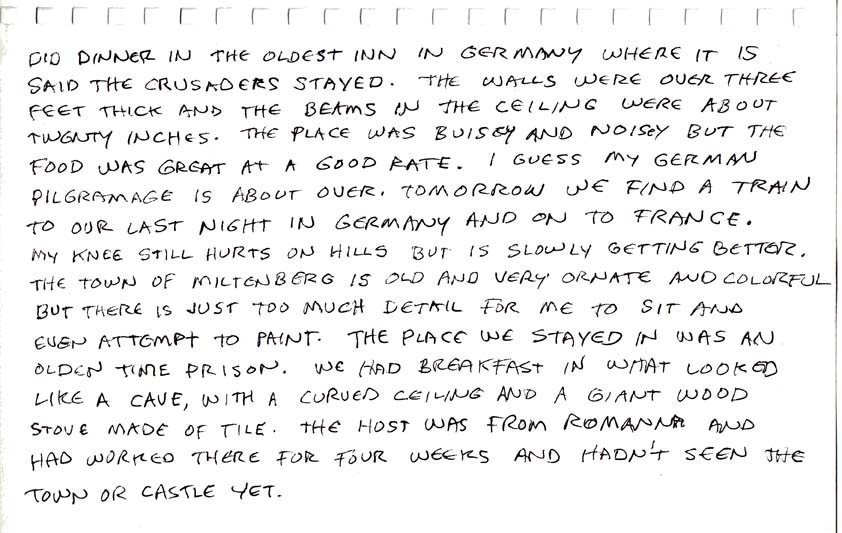 DID DINNER IN THE OLDEST INN IN GERMANY WHERE IT IS
SAID THE CRUSADERS STAYED. THE WALLS WERE OVER THREE
FEET THICK AND THE BEAMS IN THE CEILING WERE ABOUT
TWENTY INCHES. THE PLACE WAS BUISEY AND NOISEY BUT THE
FOOD WAS GREAT AT A GOOD RATE. I GUESS MY GERMAN
PILGRAMAGE IS ABOUT OVER. TOMORROW WE FIND A TRAIN
TO OUR LAST NIGHT IN GERMANY AND ON TO FRANCE.
MY KNEE STILL HURTS ON HILLS BUT IS SLOWLY GETTING BETTER.
THE TOWN OF MILTENBERG IS OLD AND VERY ORNATE AND COLORFUL
BUT THERE IS JUST TOO MUCH DETAIL FOR ME TO SIT AND
EVEN ATTEMPT TO PAINT. THE PLACE WE STAYED IN WAS AN
OLDEN TIME PRISON. WE HAD BREAKFAST IN WHAT LOOKED
LIKE A CAVE, WITH A CURVED CEILING AND A GIANT WOOD
STOVE MADE OF TILE. THE HOST WAS FROM ROMANNA AND
HAD WORKED THERE FOR FOUR WEEKS AND HADN'T SEEN THE
TOWN OR CASTLE YET.